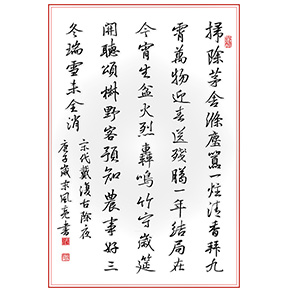 掃除茅舍滌塵囂一炷清香拜九
霄萬物迎春送殘臘一年結局在
今宵生盆火烈轟鳴竹守歲筵
開聽頌椒野客預知農事好三
冬瑞雪未全消
宋代戴復古除夜
庚子歲風亮書